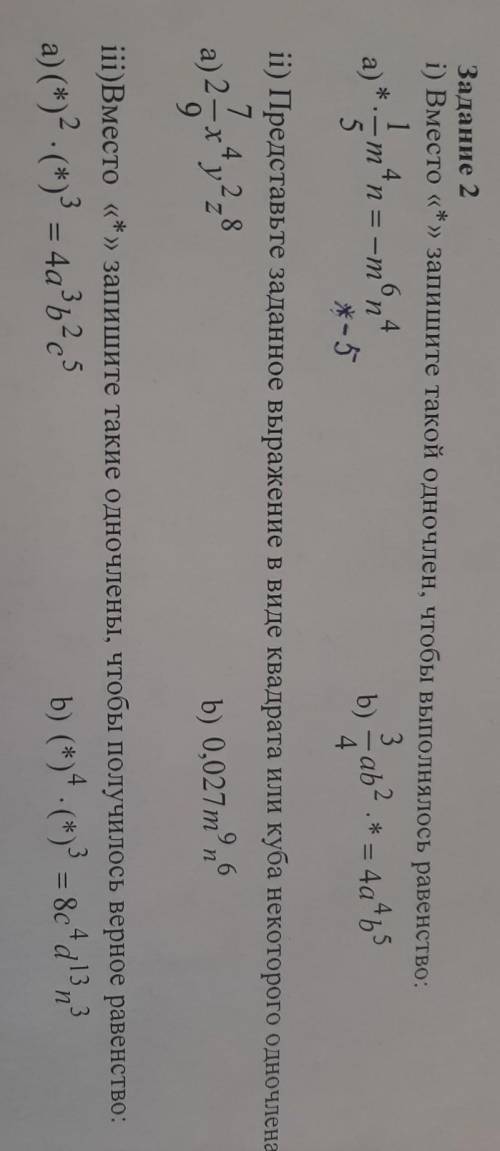 Задание 2
i) Вместо «*» запишите такой одночлен, чтобы выполнялось равенство:
a) * · 1/5 m^4 n = −m^6 n^4 b) 3/4 ab^2 · * = 4a^4 b^5
*-5
ii) Представьте заданное выражение в виде квадрата или куба некоторого одночлена
a) 2 7/9 x^4 y^2 z^8 b) 0,027m^9 n^6
iii)Вместо «*» запишите такие одночлены, чтобы получилось верное равенство:
a) (*)^2 · (*)^3 = 4a^3 b^2 c^5 b) (*)^4 · (*)^3 = 8c^4 d^13 n^3